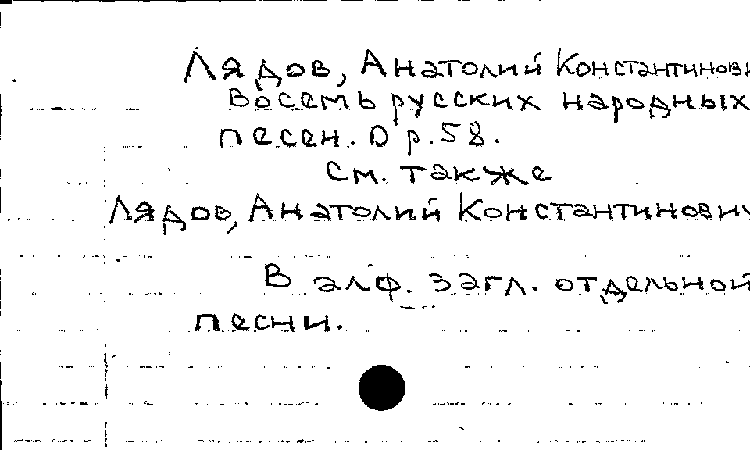 Лядов, Анатолий Константинови
Восемь русских народных
песен. Op.58.
См. также
Лядов, Анатолий Константинович
В алф. загл. отдельной
песни.